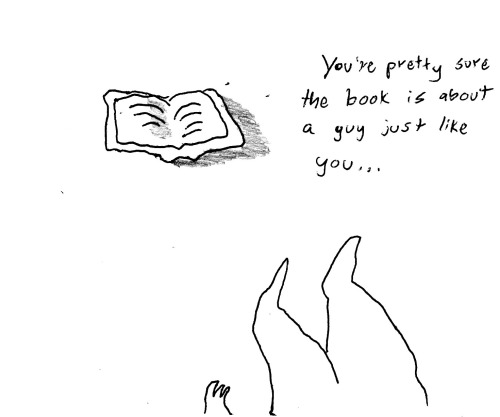 You're pretty sure
the book is about
a guy just like
you...